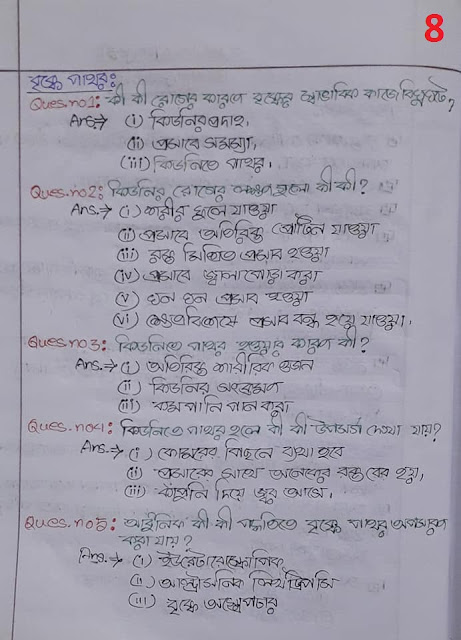 8
বৃক্কে পাথর:
Ques.no1: কী কী রোগের কারণে বৃক্কের স্বাভাবিক কাজে বিঘ্ন ঘটে?
Ans→ (i) কিডনির প্রদাহ,
(ii) প্রস্রাবে সমস্যা,
(iii) কিডনিতে পাথর।
Ques.no2: কিডনির রোগের লক্ষণ হলো কী কী?
Ans.→ (i) শরীর ফুলে যাওয়া
(ii) প্রস্রাবে অতিরিক্ত প্রোটিন যাওয়া
(iii) রক্ত মিশ্রিত প্রস্রাব হওয়া
(iv) প্রস্রাবে জ্বালাপোড়া করা
(v) ঘন ঘন প্রস্রাব হওয়া
(vi) প্রস্রাব বন্ধ হয়ে যাওয়া।
Ques.no 3: কিডনিতে পাথর হওয়ার কারণ কী?
Ans.→ (i) অতিরিক্ত শারীরিক ওজন
(ii) কিডনির সংক্রমণ
(iii) কম পানি পান করা
Ques.no4: কিডনিতে পাথর হলে কী কী উপসর্গ দেখা যায়?
Ans.→ (i) কোমরের পিছনে ব্যথা হবে
(ii) প্রস্রাবের সাথে অনেকের রক্ত বের হয়,
(iii) কাঁপুনি দিয়ে জ্বর আসে।
Ques.no5: আধুনিক কী কী পদ্ধতিতে বৃক্কে পাথর অপসারণ
করা যায়?
Ans.→ (i) ইউরেটারোস্কোপিক
(ii) আল্ট্রাসনিক লিথট্রিপসি
(iii) বৃক্কে অস্ত্রোপচার